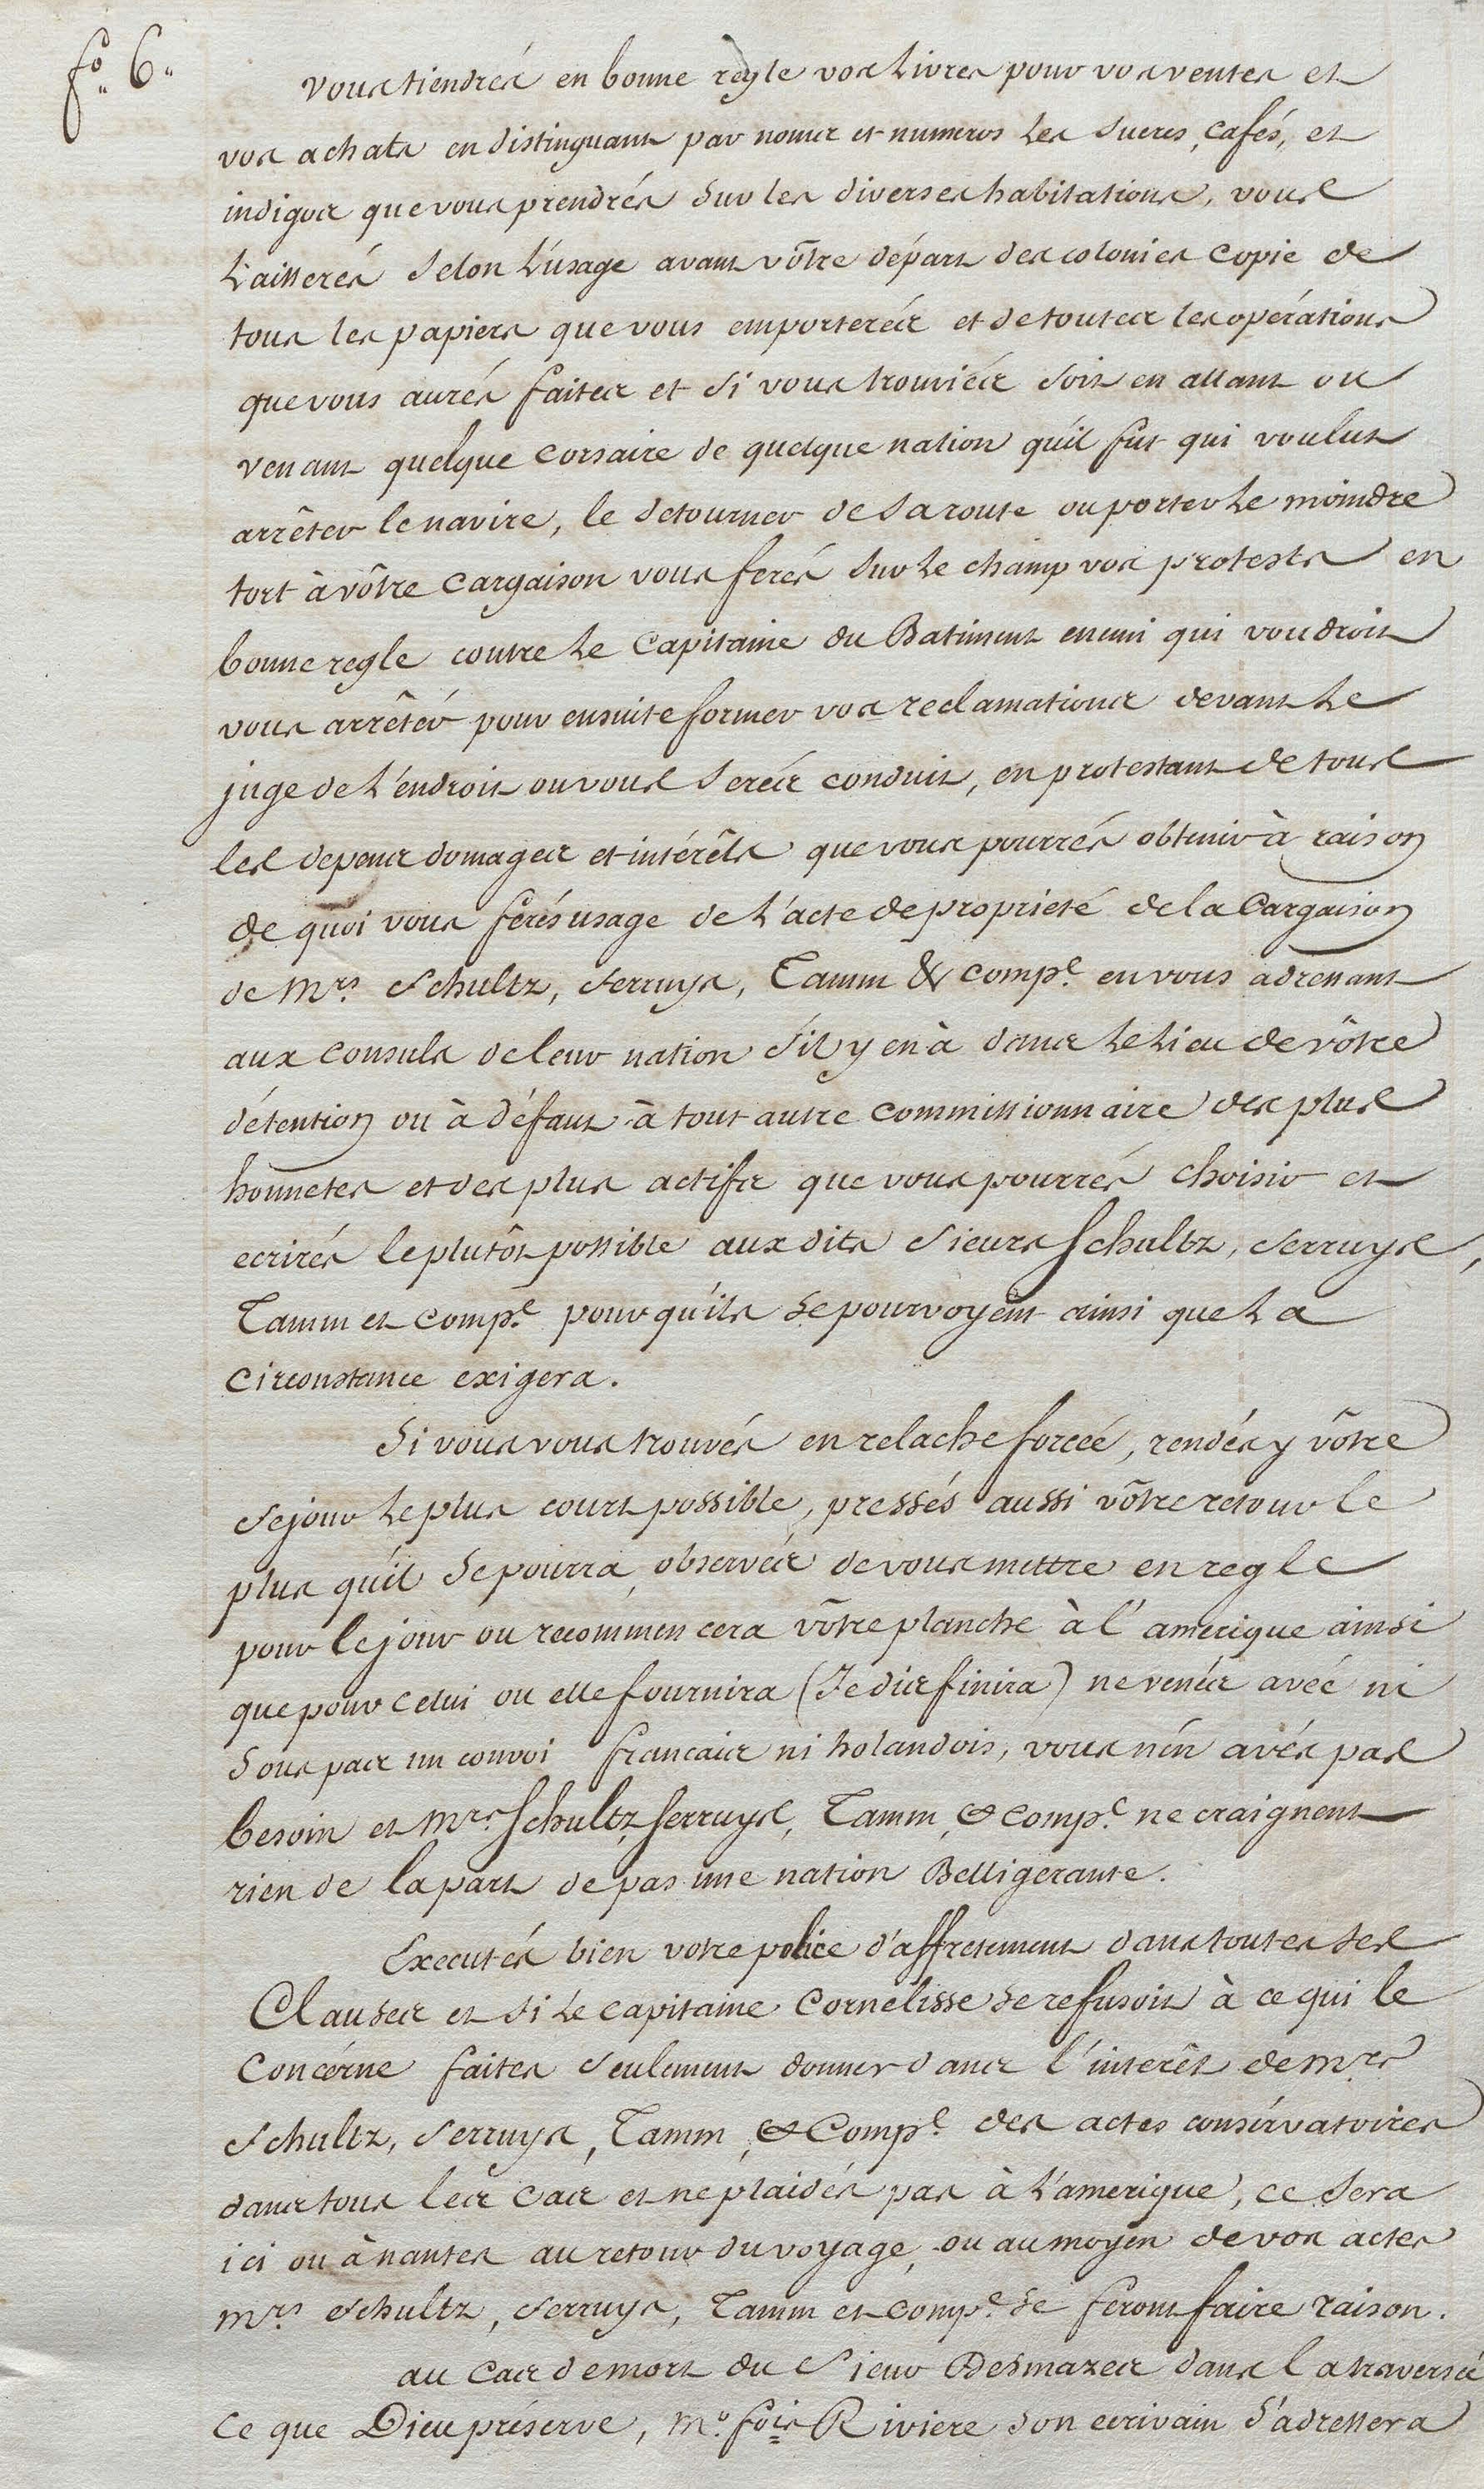 fo. 6.
Vous tiendrés en bonne regle vos Livres pour vos ventes et
vos achats en distinguant par noms et numeros les sucres, cafés, et
indigos que vous prendrés sur les diverses habitations, vous
Laisserés selon L'usage avant vôtre départ des colonies copie de
tous les papiers que vous emporterés et de toutes les opérations
que vous aurés faites et si vous trouviés soit en allant ou
venant quelque corsaire de quelque nation qu'il fut qui voulut
arrêter le navire, le detourner de sa route ou porter Le moindre
tort à vôtre cargaison vous ferés sur Le champ vos protests en
bonne regle contre Le Capitaine du Batiment enemi qui voudroit
vous arrêtér pour ensuite former vos reclamations devant Le
juge de L'endroit ou vous serés conduit, en protestant de tous
les depens domages et intérêts que vous pourrés obtenir à raison
de quoi vous ferés usage de L'acte de proprieté de la Cargaison
de Mrs. Schultz, Serruys, Tamm & Compe. en vous adressant
aux Consuls de leur nation s'il y en à dans Le Lieu de vôtre
détention ou à défaut à tout autre commissionnaire des plus
honnetes et des plus actifs que vous pourrés choisir et
ecrirés le plutôt possible aux dits Sieurs Schultz, Serruys,
Tamm et Compe. pour qu'ils se pourvoyent ainsi que La
circonstance exigera.
Si vous vous trouvés en relache forcée, rendés y vôtre
sejour Le plus court possible, pressés aussi vôtre retour le
plus qu'il se pourra, observés de vous mettre en regle
pour le jour ou recommencera vôtre planche à l'amerique ainsi
que pour celui ou elle fournira (Je dis finira) ne venés avéc ni
sous pas un convoi francais ni holandois, vous n'en avés pas
besoin et Mrs. Schultz, Serruys, Tamm, & Compe. ne craignent
rien de la part de pas une nation Belligerante.
Executés bien votre police d'affretement dans toutes ses
Clauses et si Le capitaine Cornelisse se refusoit à ce qui le
Concérne faites seulement donner dans l'interêt de Mrs
Schultz, Serruys, Tamm, & Compe. des actes consérvatoires
dans tous les cas et ne plaidés pas à L'amerique, ce sera
ici ou à nantes au retour du voyage, ou au moyen de vos actes
Mrs. Schultz, Serruys, Tamm et Compe. se feront faire raison.
au cas de mort du Sieur Desmazes dans la traversée
Ce que Dieu préserve, Mo. fois Riviere son ecrivain s'adressera